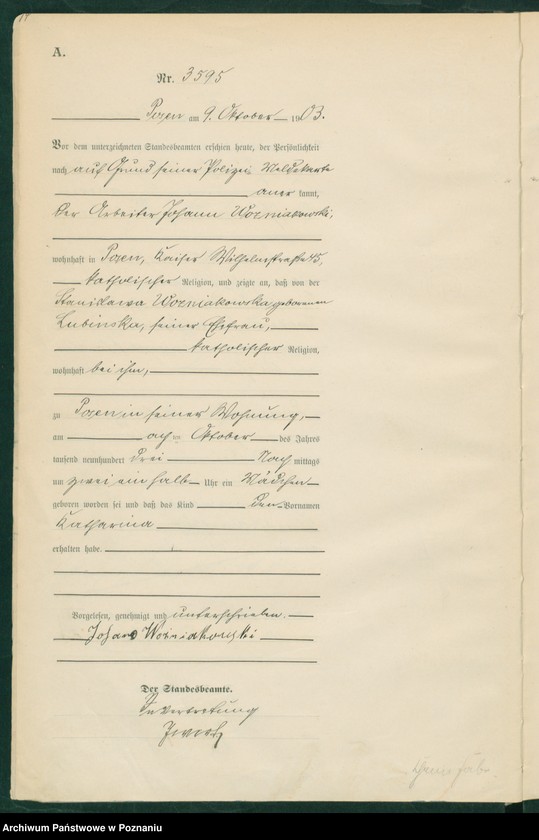 A.
Nr. 3595
Posen am 9. Oktober 1903.
Vor dem unterzeichneten Standesbeamten erschien heute, der Persönlichkeit
nach auf Grund seiner Polizei Meldekarte
anerkannt,
der Arbeiter Johann Wozniakowski,
wohnhaft in Posen, Kaiser Wilhelmstraße 45,
katholischer Religion, und zeigte an, daß von der
Stanislawa Wozniakowska geborenen
Lubinska, seiner Ehefrau,
katholischer Religion,
wohnhaft bei ihm,
zu Posen in seiner Wohnung,
am acht ten Oktober des Jahres
tausend neunhundert drei Nach mittags
um zwei ein halb Uhr ein Mädchen
geboren worden sei und daß das Kind den Vornamen
Katharina
erhalten habe.
Vorgelesen, genehmigt und unterschrieben.
Johann Wozniakowski
Der Standesbeamte.
In Vertretung
Archiwum Państwowe w Poznaniu